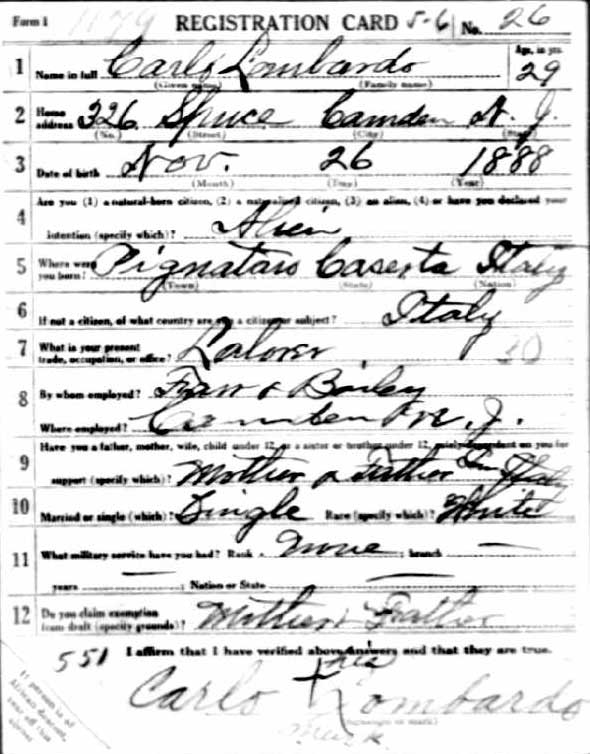 Form 1 1179 REGISTRATION CARD 5-6 No. 26
1 Name in full Carlo Lombardo Age, in yrs. 29
(Given name) (Family name)
2 Home address 326 Spruce Camden N. J.
(No.) (Street) (City) (State)
3 Date of birth Nov. 26 1888
(Month) (Day) (Year)
4 Are you (1) a natural-born citizen, (2) a naturalized citizen, (3) an alien, (4) or have you declared your
intention (specify which)? Alien
5 Where were you born? Pignataro Caserta Italy
(Town) (State) (Nation)
6 If not a citizen, of what country are you a citizen or subject? Italy
7 What is your present trade, occupation, or office? Laborer 30
8 By whom employed? Farr & Bailey
Where employed? Camden N. J.
9 Have you a father, mother, wife, child under 12, or a sister or brother under 12, solely dependent on you for
support (specify which)? Mother & Father
10 Married or single (which)? Single Race (specify which)? White
11 What military service have you had? Rank None; branch —
years —; Nation or State —
12 Do you claim exemption from draft (specify grounds)? Mother & Father
551 I affirm that I have verified above answers and that they are true.
his
Carlo X Lombardo
(Signature or mark)
mark
If person is of African descent, tear off this corner